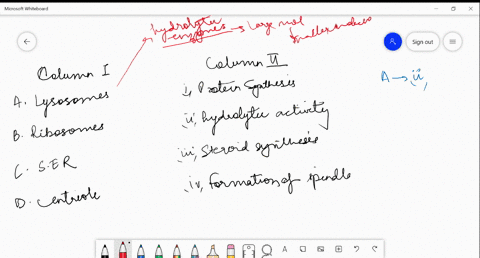 Microsoft Whiteboard
hydrolytic enzymes → Large mol
smaller molecules
Sign out
Column I
Column II
A. Lysosomes
i, Protein Synthesis
A → ii,
B. Ribosomes
ii, hydrolytic activity
C. S.ER
iii, Steroid synthesis
D. Centriole
iv, Formation of spindle